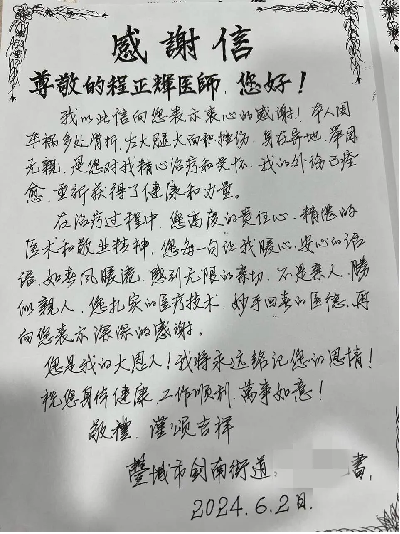 感謝信
尊敬的程正輝医師,您好！
我以此信向您表示衷心的感谢！本人因
车祸多处骨折,左大腿大面积挫伤,身在异地,举目
无親,是您对我精心治疗和关怀,我的外伤已痊
愈,重新获得了健康和力量。
在治疗过程中,您高度的责任心,精湛的
医术和敬业精神,您每一句让我暖心,安心的话
语,如春风暖流,感到无限的亲切,不是亲人,勝
似親人,您扎实的医疗技术,妙手回春的医德,再
向您表示深深的感谢。
您是我的大恩人！我将永远铭记您的恩情！
祝您身体健康,工作顺利,萬事如意！
敬禮,谨颂吉祥
豐城市剑南街道 書,
2024.6.2日.